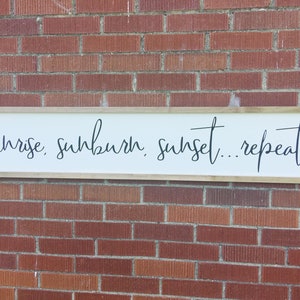 nrise, sunburn, sunset...repeat